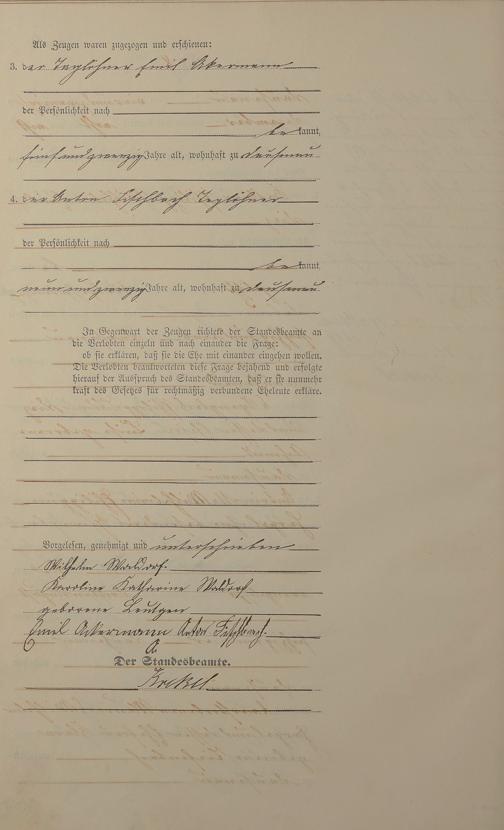 Als Zeugen waren zugezogen und erschienen:
3. der Taglöhner Emil Akermann
der Persönlichkeit nach
be kannt,
fünfundzwanzig Jahre alt, wohnhaft zu Dausenau
4. der Anton Fischbach Taglöhner
der Persönlichkeit nach
be kannt
neunundzwanzig Jahre alt, wohnhaft zu Dausenau
In Gegenwart der Zeugen richtete der Standesbeamte an
die Verlobten einzeln und nach einander die Frage:
ob sie erklären, daß sie die Ehe mit einander eingehen wollen.
Die Verlobten beantworteten diese Frage bejahend und erfolgte
hierauf der Ausspruch des Standesbeamten, daß er sie nunmehr
kraft des Gesetzes für rechtmäßig verbundene Eheleute erkläre.
Vorgelesen, genehmigt und unterschrieben
Wilhelm Waldorf.
Karoline Katharine Waldorf
geborene Leutgen
Emil Ackermann Anton Fischbach.
Der Standesbeamte.
Krekel